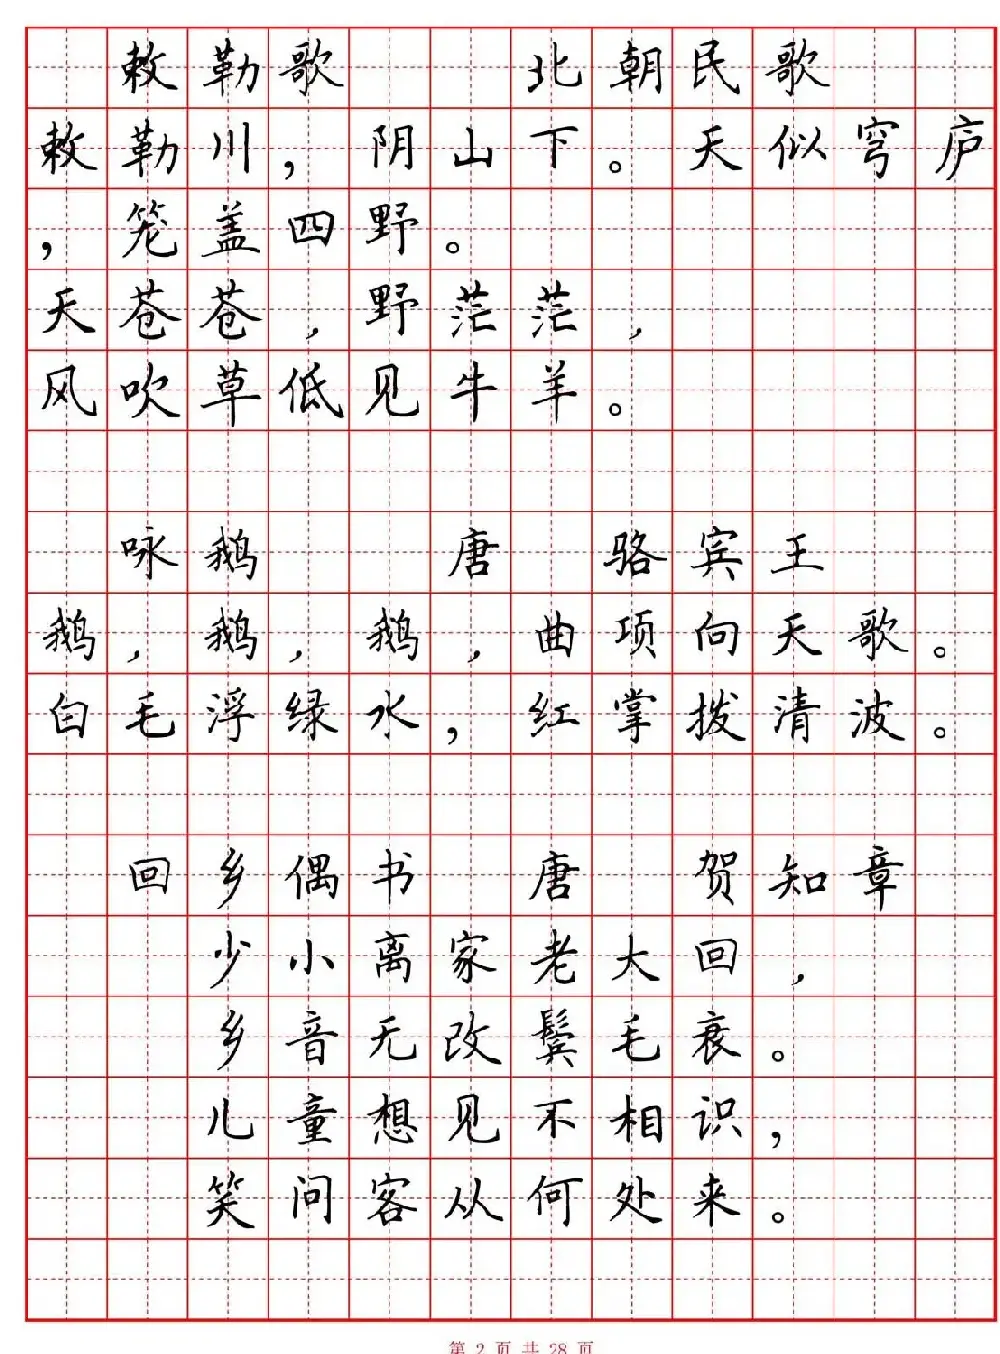 敕勒歌 北朝民歌
敕勒川，阴山下。天似穹庐
，笼盖四野。
天苍苍，野茫茫，
风吹草低见牛羊。
咏鹅 唐 骆宾王
鹅，鹅，鹅，曲项向天歌。
白毛浮绿水，红掌拨清波。
回乡偶书 唐 贺知章
少小离家老大回，
乡音无改鬓毛衰。
儿童想见不相识，
笑问客从何处来。
第 2 页 共 28 页